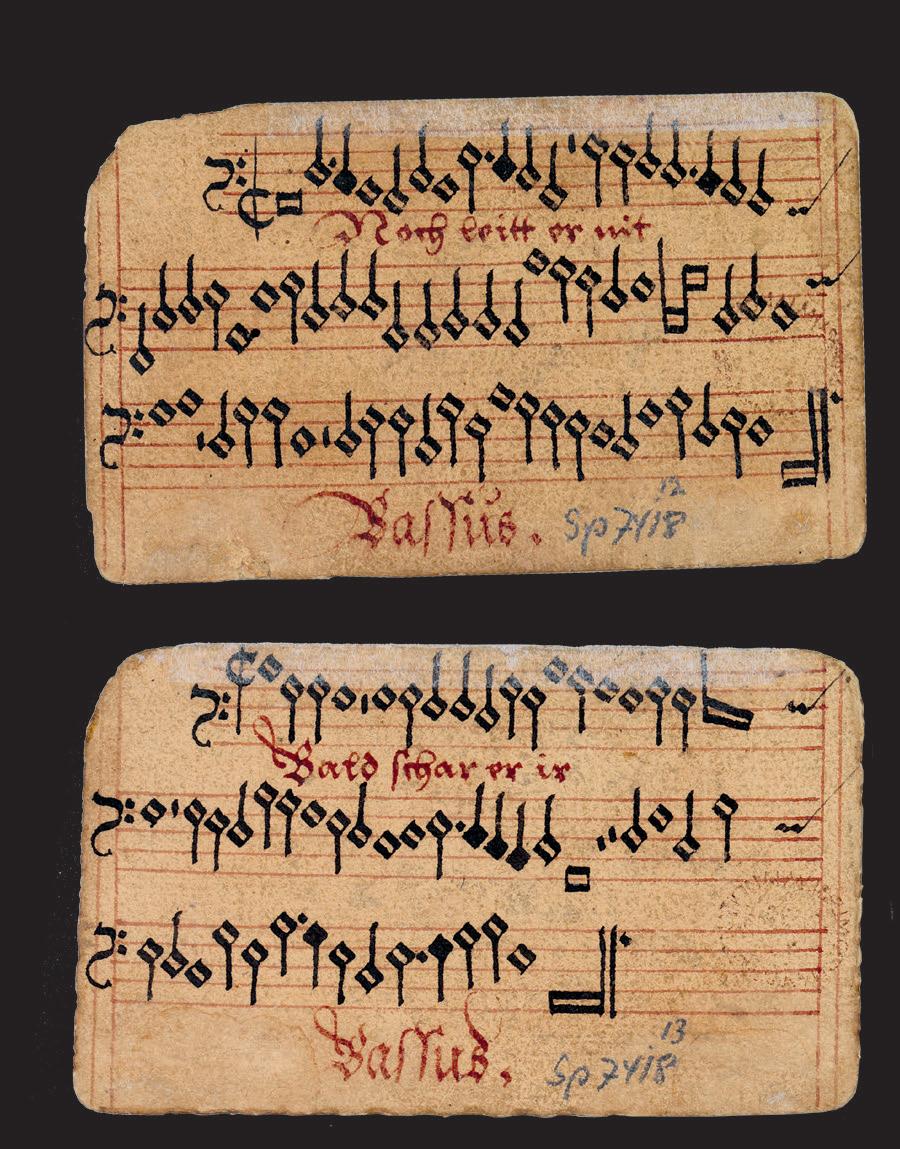 Noch leitt er nit
12
Bassus. Sp7418
Bald schar er ir
13
Bassus. Sp7418